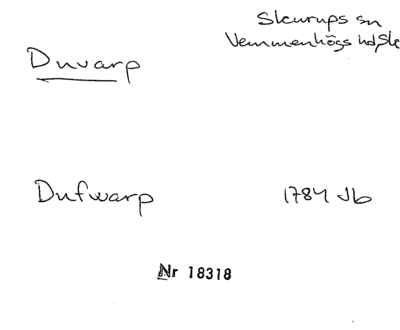 Skurups sn
Vemmenhögs hd, Sk
Duvarp
Dufwarp 1784 Jb
Nr 18318